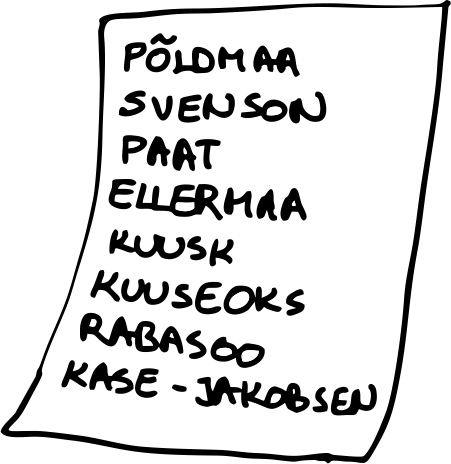 PÕLDMAA
SVENSON
PAAT
ELLERMAA
KUUSK
KUUSEOKS
RABASOO
KASE-JAKOBSEN